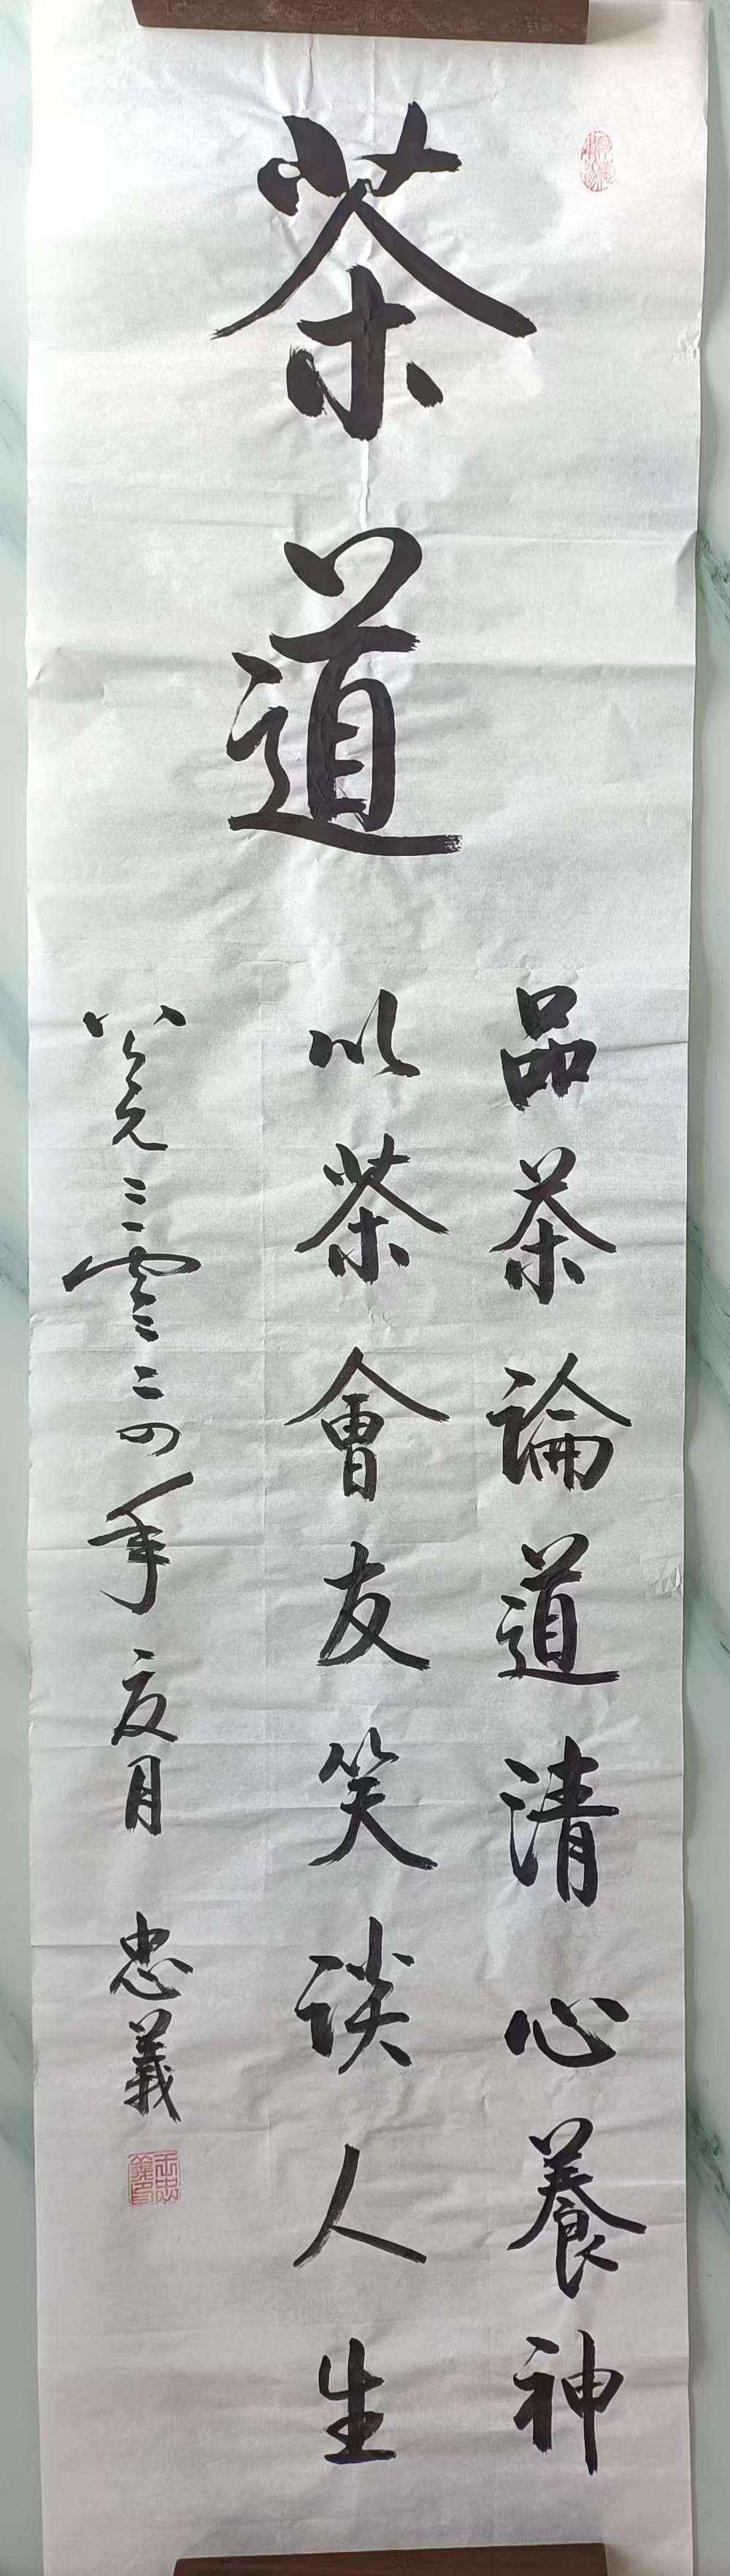 茶道
品茶論道清心養神
以茶會友笑谈人生
公元二零二四年夏月 忠義